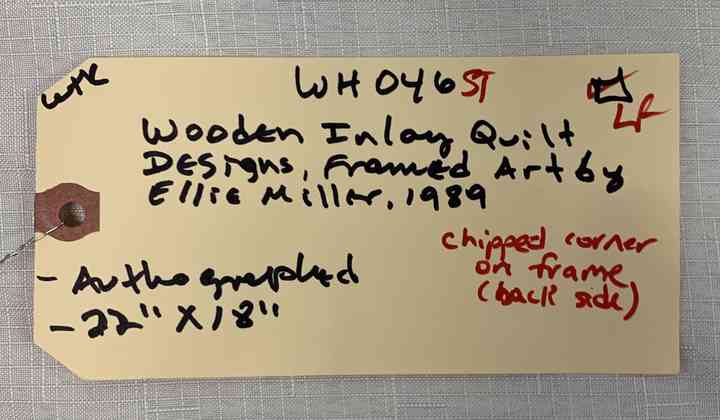 WHC
WH046ST
LF
Wooden Inlay Quilt
Designs, Framed Art by
Ellie Miller, 1989
- Authographed
- 22" X 18"
chipped corner
on frame
(back side)